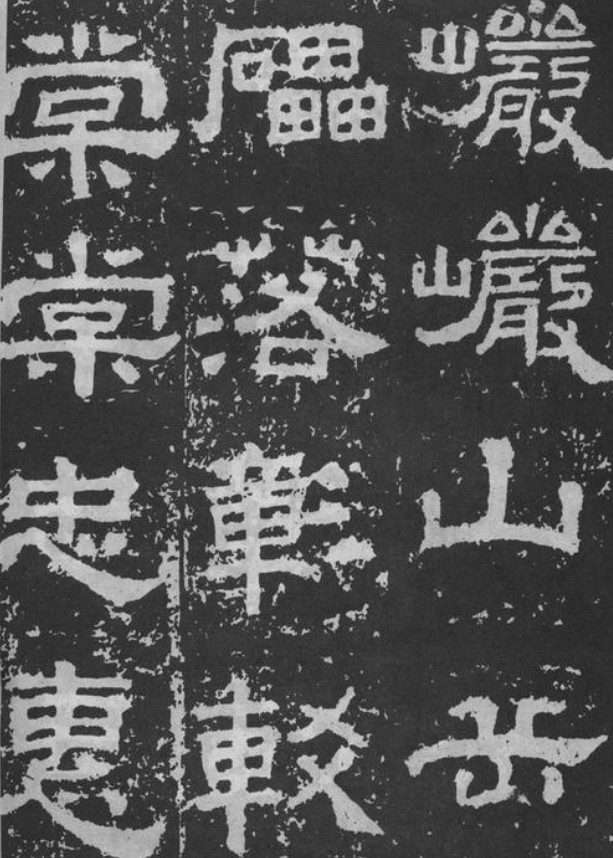 巖巖山岳
礧落彰較
棠棠忠惠